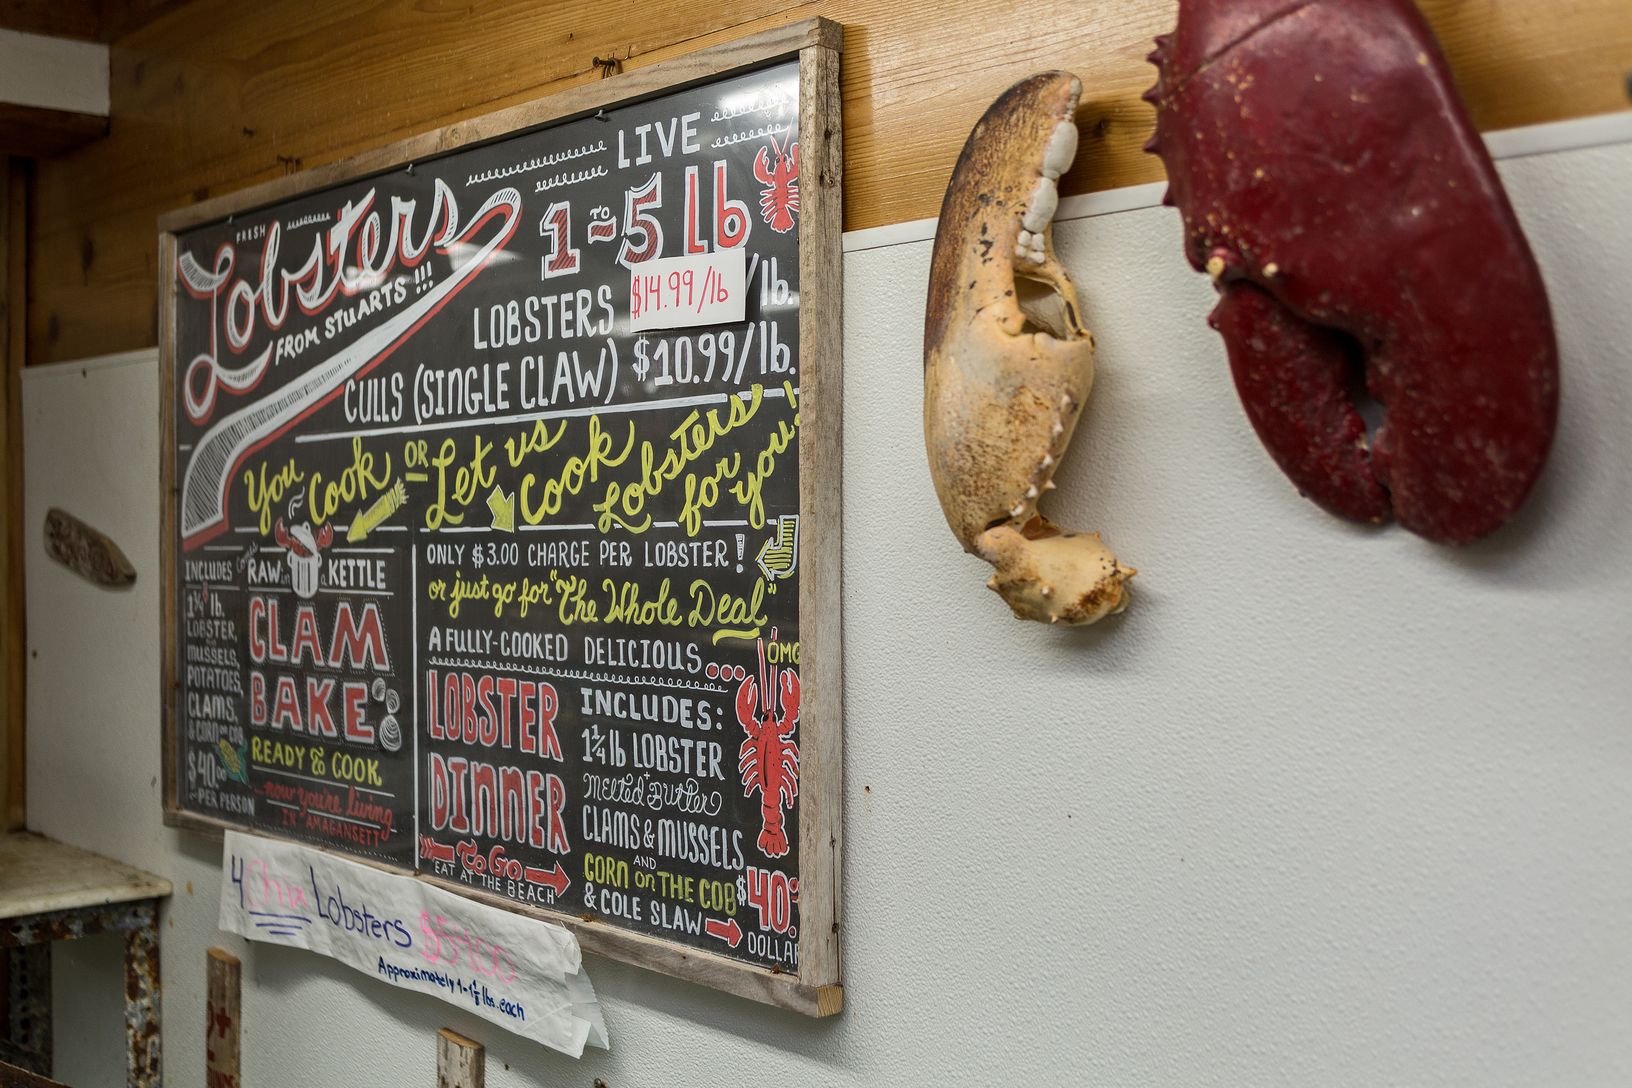 FRESH
Lobsters
FROM STUARTS!!!
LIVE
1 TO 5 lb
LOBSTERS $14.99/lb /lb.
CULLS (SINGLE CLAW) $10.99/lb.
You Cook OR Let us Cook Lobsters for you!
INCLUDES
1¼ lb.
LOBSTER,
MUSSELS,
POTATOES,
CLAMS,
& CORN ON COB
$40.00
PER PERSON
Comes
RAW in a KETTLE
CLAM
BAKE
READY & COOK
...now you're living
IN AMAGANSETT
ONLY $3.00 CHARGE PER LOBSTER!
or just go for "The Whole Deal"
A FULLY-COOKED DELICIOUS...
OMG
LOBSTER
DINNER
TO GO
EAT AT THE BEACH
INCLUDES:
1¼ lb LOBSTER
+
Melted Butter
CLAMS & MUSSELS
AND
CORN ON THE COB
& COLE SLAW
$40
DOLLAR
4 Chix Lobsters $59.00
Approximately 1-1⅛ lbs. each